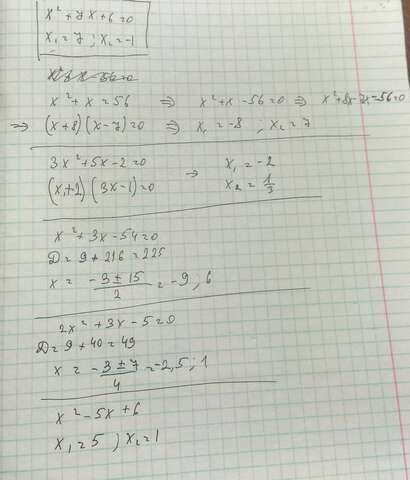 x² + 7x + 6 = 0
x₁ = 7 ; x₂ = -1
x² + x = 56 ⇒ x² + x - 56 = 0 ⇒ x² + 8x - 7x - 56 = 0
⇒ (x + 8)(x - 7) = 0 ⇒ x₁ = -8 ; x₂ = 7
3x² + 5x - 2 = 0 → x₁ = -2
(x₁ + 2)(3x - 1) = 0 x₂ = 1/3
x² + 3x - 54 = 0
D = 9 + 216 = 225
x = (-3 ± 15)/2 = -9 ; 6
2x² + 3x - 5 = 0
D = 9 + 40 = 49
x = (-3 ± 7)/4 = -2,5 ; 1
x² - 5x + 6
x₁ = 5 ; x₂ = 1